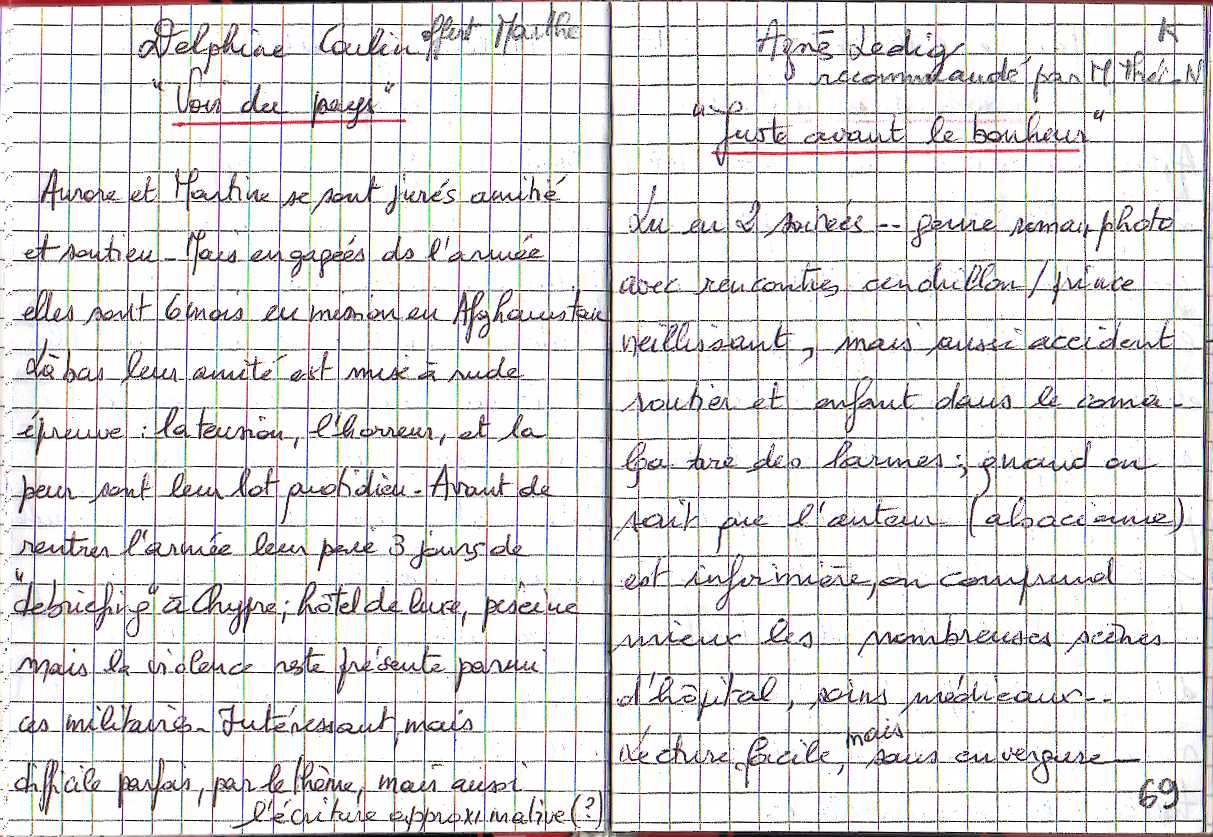 Delphine Coulin offert Marthe
"Voir du pays"
Aurore et Martine se sont jurés amitié
et soutien - Mais engagées ds l'armée
elles sont 6 mois en mission en Afghanistan
Là bas leur amitié est mise à rude
épreuve : la tension, l'horreur, et la
peur sont leur lot quotidien - Avant de
rentrer l'armée leur paie 3 jours de
"debriefing" à Chypre ; hôtel de luxe, piscine
mais la violence reste présente parmi
ces militaires - Intéressant, mais
difficile parfois, par le thème, mais aussi
l'écriture approximative (?)
K
Agnès Ledig
recommandé par M Thé-N
"Juste avant le bonheur"
Lu en 2 soirées -- genre roman photo
avec rencontres cendrillon/prince
vieillissant, mais aussi accident
routier et enfant dans le coma -
Ça tire des larmes ; quand on
sait que l'auteur (alsacienne)
est infirmière, on comprend
mieux les nombreuses scènes
d'hôpital, soins médicaux --
Lecture facile, mais sans envergure -
69